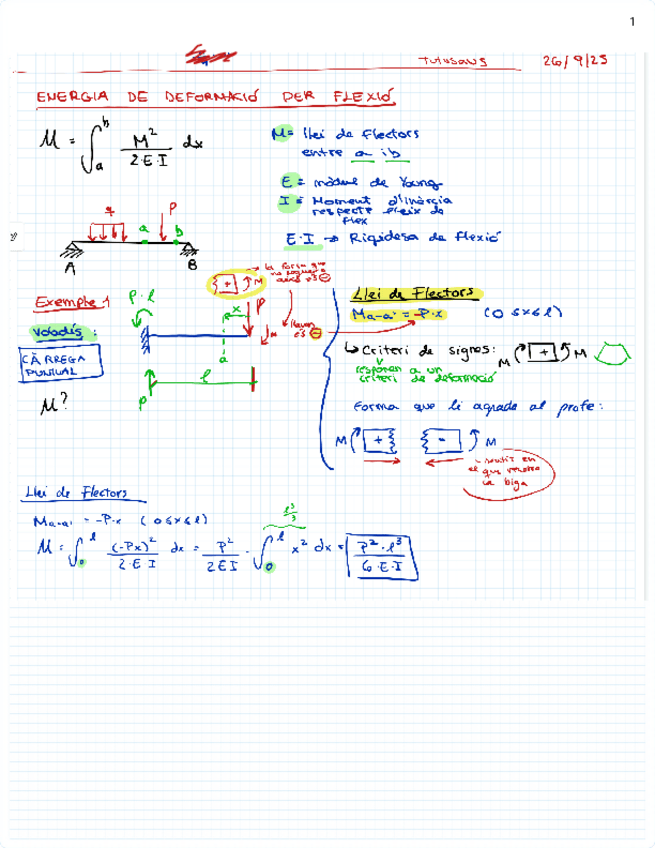 1
26/9/25
ENERGIA DE DEFORMACIÓ PER FLEXIÓ
M = ∫ₐᵇ M²/2·E·I dx
M = llei de flectors
entre a i b
E = mòdul de Young
I = Moment d'inèrcia
respecte eix de
flex
E·I → Rigidesa de flexió
q
P
a
b
A
B
Exemple 1
P·l
voladís:
CÀRREGA
PUNTUAL
M?
x
P
M
a
l
P
+ M
→ la força que
és ⊖
Llei de Flectors
Ma-a' = -P·x (0≤x≤l)
↳ Criteri de signes: M + M
responen a un
criteri de deformació
Forma que li agrada al profe:
M + - M
sentit en
el que
la biga
Llei de Flectors
Ma-a' = -P·x (0≤x≤l)
l³/3
M = ∫₀ˡ (-Px)²/2·E·I dx = P²/2EI · ∫₀ˡ x² dx = P²·l³/6·E·I